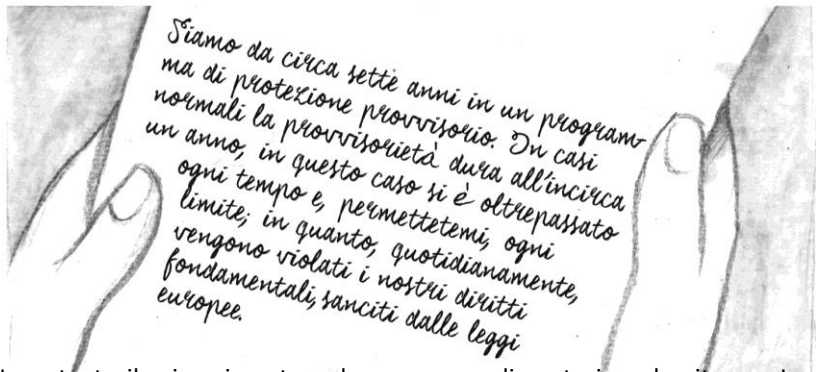 Siamo da circa sette anni in un program-
ma di protezione provvisorio. In casi
normali la provvisorietà dura all'incirca
un anno, in questo caso si è oltrepassato
ogni tempo e, permettetemi, ogni
limite; in quanto, quotidianamente,
vengono violati i nostri diritti
fondamentali, sanciti dalle leggi
europee.